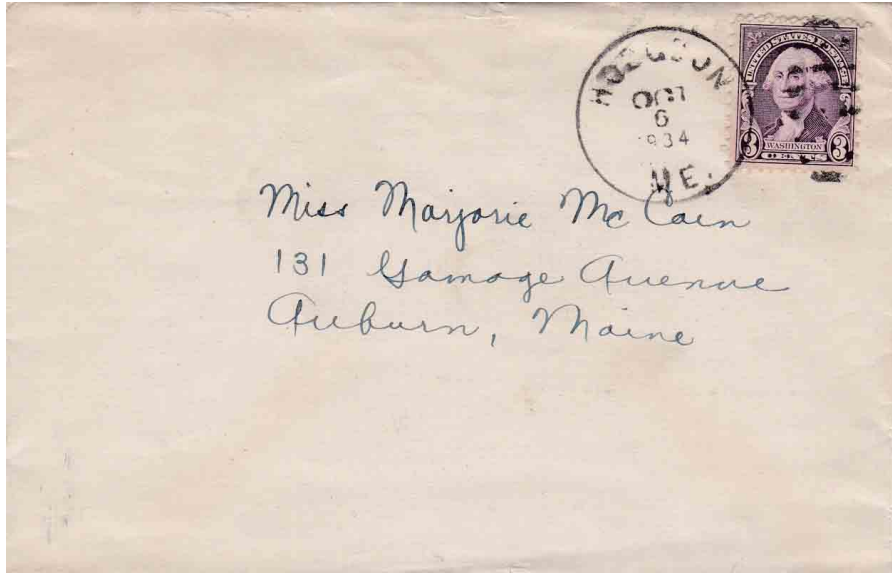 HODGDON
OCT
6
1934
ME.
UNITED STATES POSTAGE
3 WASHINGTON 3
Miss Marjorie McCain
131 Gamage Avenue
Auburn, Maine